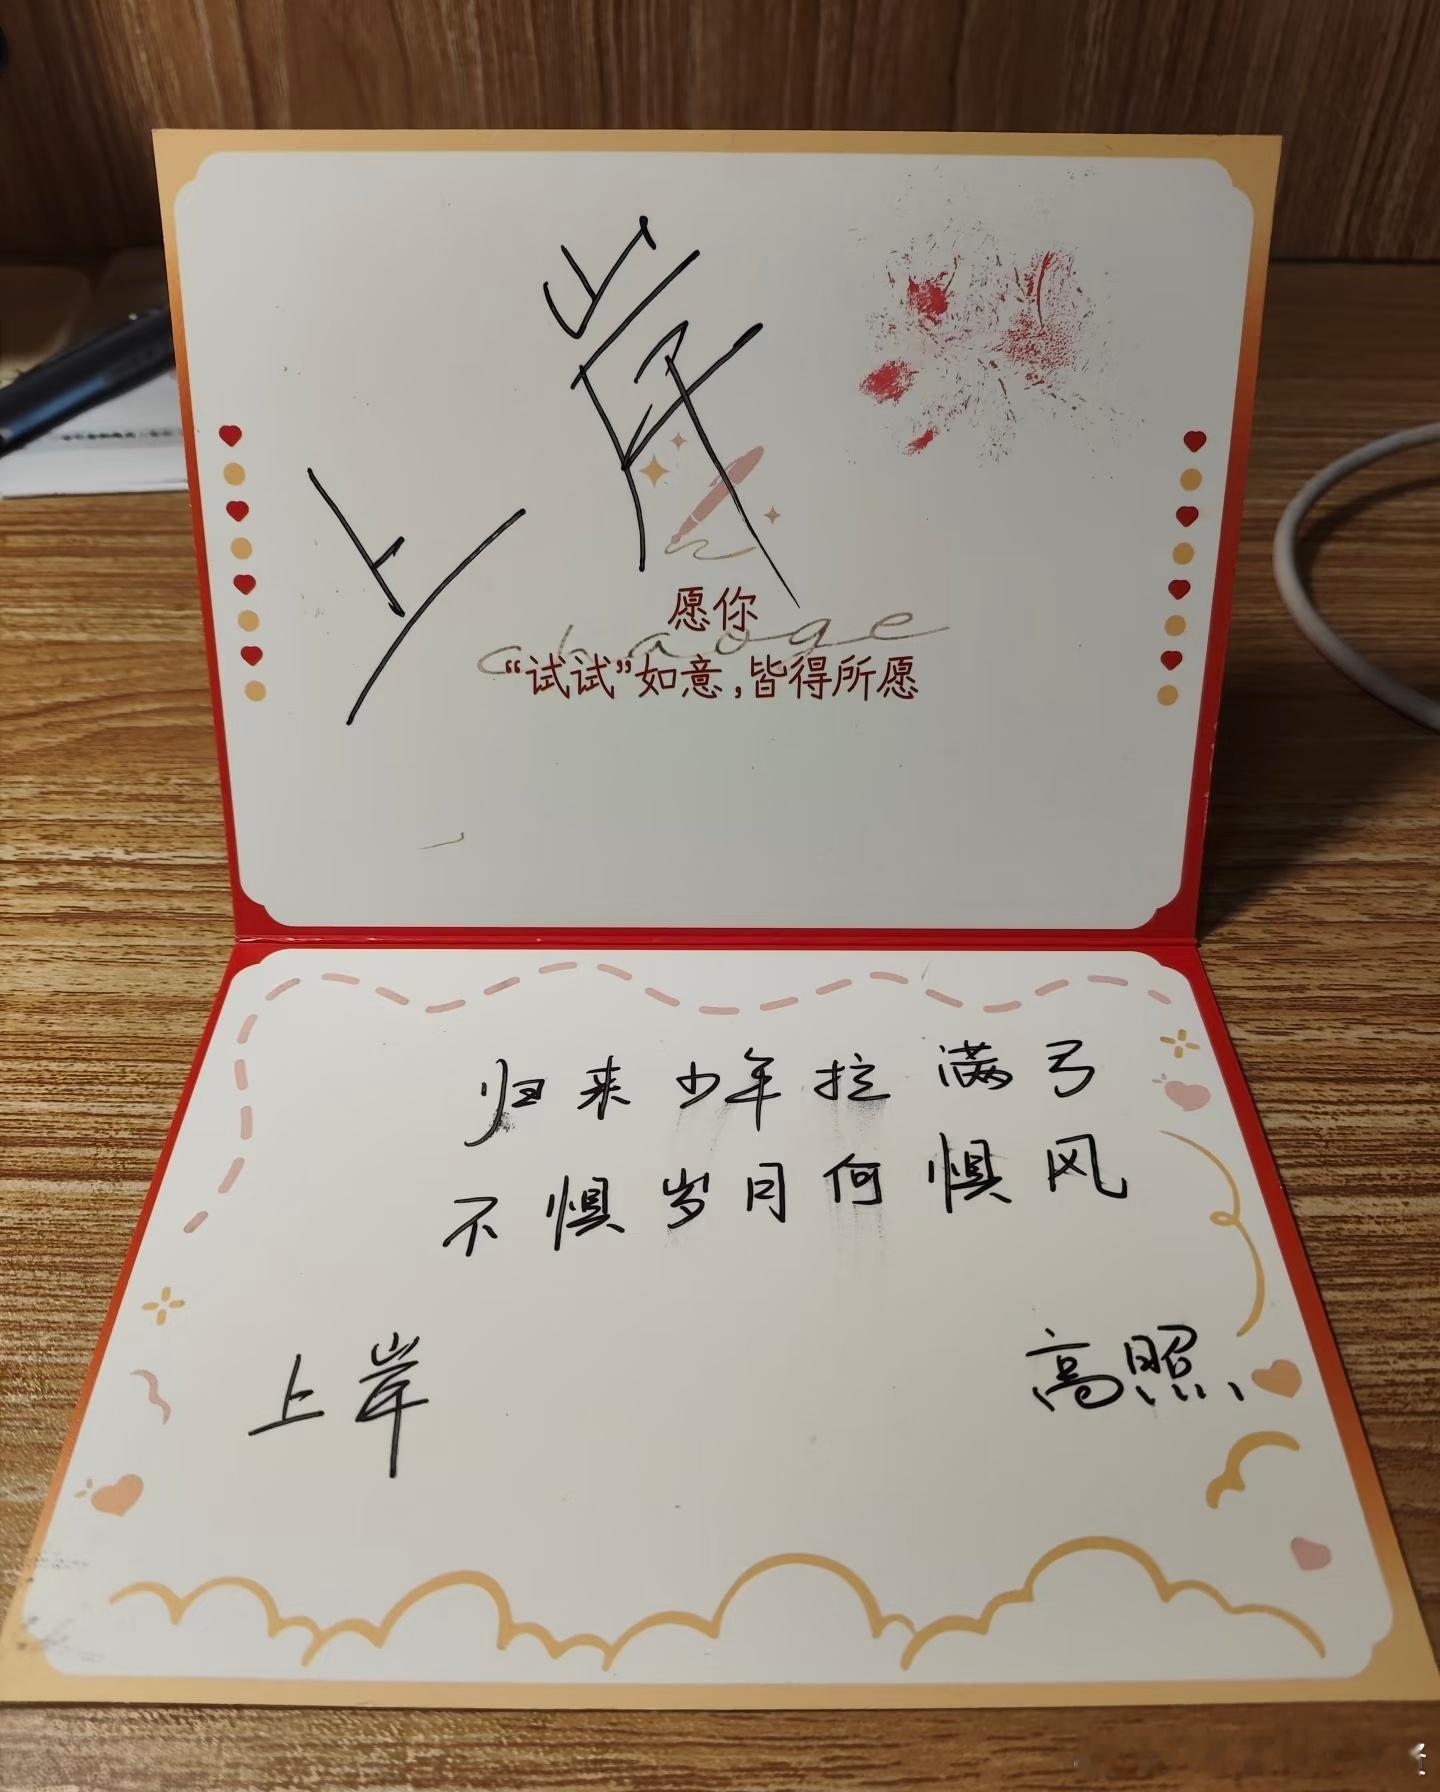 上岸
愿你
chaoge
“试试”如意,皆得所愿
归来少年拉满弓
不惧岁月何惧风
上岸
高照